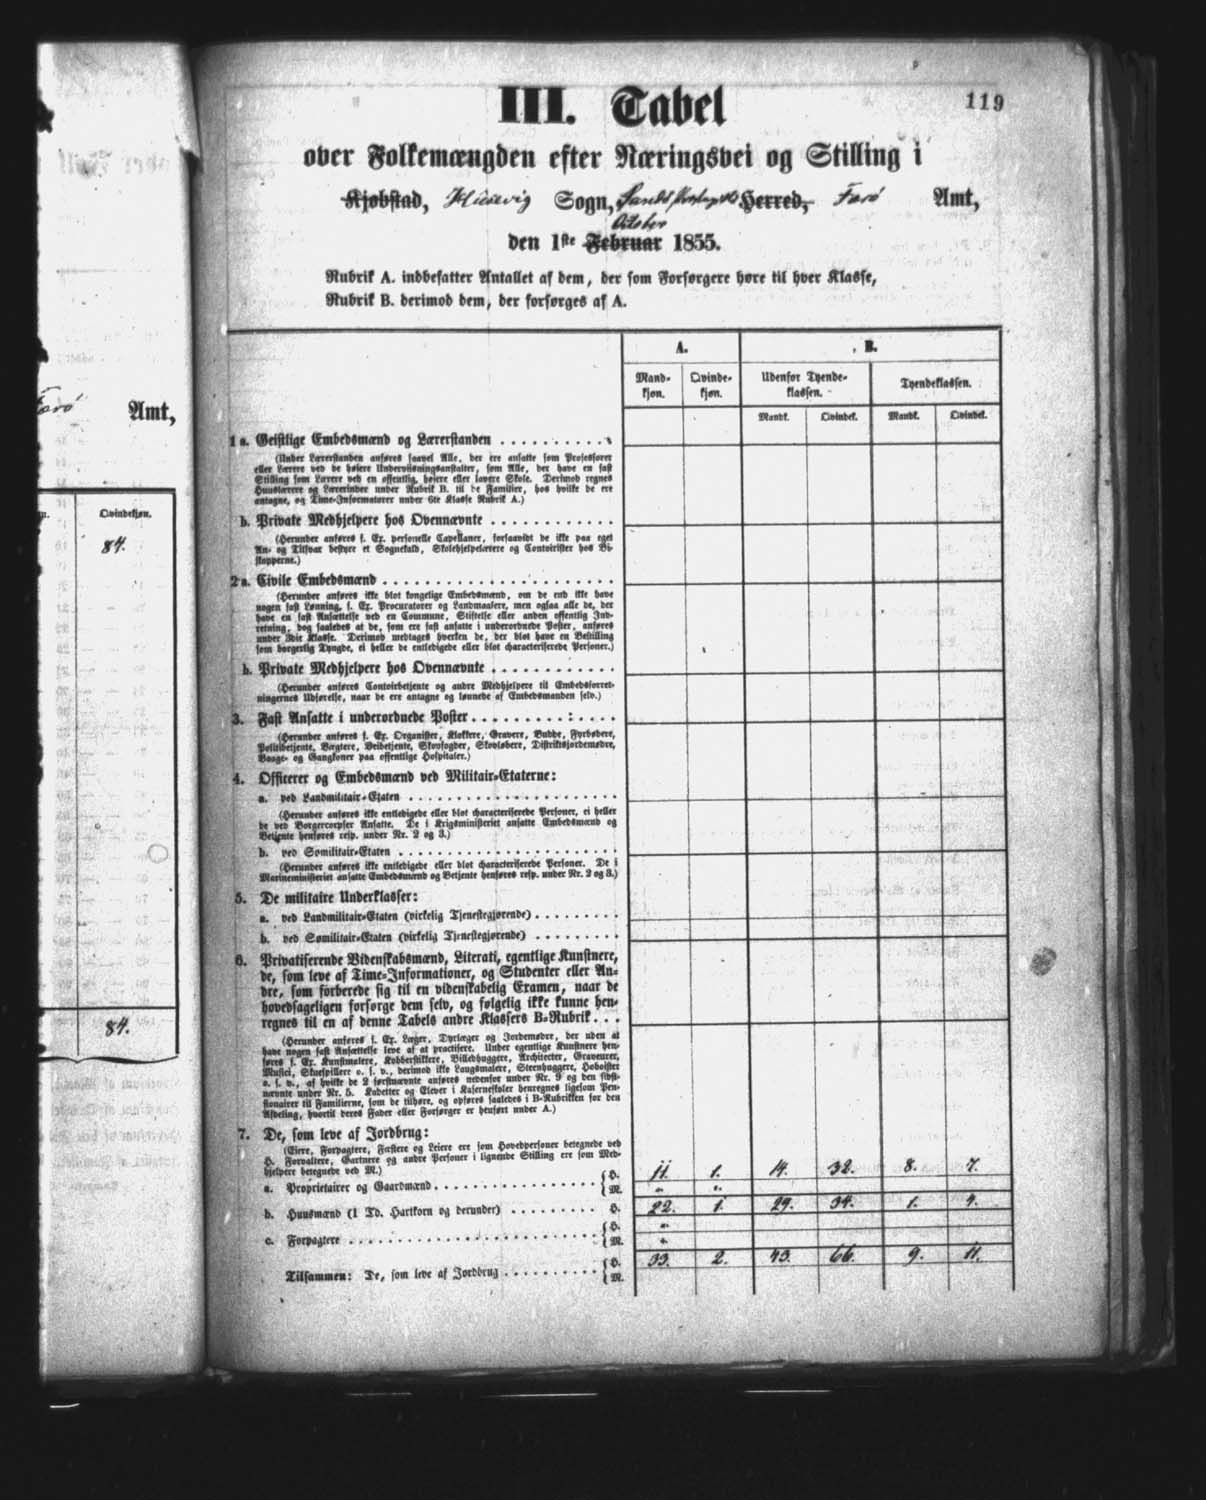 119
III. Tabel
over Folkemængden efter Næringsvei og Stilling i
Kjøbstad, Husevig Sogn, Sandø Præstegjeld Herred, Færø Amt,
October
den 1ste Februar 1855.
Rubrik A. indbefatter Antallet af dem, der som Forsørgere høre til hver Klasse,
Rubrik B. derimod dem, der forsørges af A.
A. B.
Mand- Qvinde- Udenfor Tyende- Tyendeklassen.
kjøn. kjøn. klassen.
Mandk. Qvindek. Mandk. Qvindek.
1 a. Geistlige Embedsmænd og Lærerstanden
(Under Lærerstanden anføres saavel Alle, der ere ansatte som Professorer
eller Lærere ved de høiere Underviisningsanstalter, som Alle, der have en fast
Stilling som Lærere ved en offentlig, høiere eller lavere Skole. Derimod regnes
Huuslærere og Lærerinder under Rubrik B. til de Familier, hos hvilke de ere
antagne, og Time-Informatorer under 6te Klasse Rubrik A.)
b. Private Medhjelpere hos Ovennævnte
(Herunder anføres f. Ex. personelle Capellaner, forsaavidt de ikke paa eget
An- og Tilsvar bestyre et Sognekald, Skolehjelpelærere og Contoirister hos Bi-
skopperne.)
2 a. Civile Embedsmænd
(Herunder anføres ikke blot kongelige Embedsmænd, om de end ikke have
nogen fast Lønning, f. Ex. Procuratorer og Landmaalere, men ogsaa alle de, der
have en fast Ansættelse ved en Commune, Stiftelse eller anden offentlig Ind-
retning, dog saaledes at de, som ere fast ansatte i underordnede Poster, anføres
under 3die Klasse. Derimod medtages hverken de, der blot have en Bestilling
som borgerlig Tyngde, ei heller de entledigede eller blot characteriserede Personer.)
b. Private Medhjelpere hos Ovennævnte
(Herunder anføres Contoirbetjente og andre Medhjelpere til Embedsforret-
ningernes Udførelse, naar de ere antagne og lønnede af Embedsmanden selv.)
3. Fast Ansatte i underordnede Poster
(Herunder anføres f. Ex. Organister, Klokkere, Gravere, Budde, Fyrbødere,
Politibetjente, Vægtere, Veibetjente, Skovfogder, Skovløbere, Distriktsjordemødre,
Vaage- og Gangkoner paa offentlige Hospitaler.)
4. Officerer og Embedsmænd ved Militair-Etaterne:
a. ved Landmilitair-Etaten
(Herunder anføres ikke entledigede eller blot characteriserede Personer, ei heller
de ved Borgercorpser Ansatte. De i Krigsministeriet ansatte Embedsmænd og
Betjente henføres resp. under Nr. 2 og 3.)
b. ved Sømilitair-Etaten
(Herunder anføres ikke entledigede eller blot characteriserede Personer. De i
Marineministeriet ansatte Embedsmænd og Betjente henføres resp. under Nr. 2 og 3.)
5. De militaire Underklasser:
a. ved Landmilitair-Etaten (virkelig Tjenestegjørende)
b. ved Sømilitair-Etaten (virkelig Tjenestegjørende)
6. Privatiserende Videnskabsmænd, Literati, egentlige Kunstnere,
de, som leve af Time-Informationer, og Studenter eller An-
dre, som forberede sig til en videnskabelig Examen, naar de
hovedsageligen forsørge dem selv, og følgelig ikke kunne hen-
regnes til en af denne Tabels andre Klassers B-Rubrik
(Herunder anføres f. Ex. Læger, Dyrlæger og Jordemødre, der uden at
have nogen fast Ansættelse leve af at practisere. Under egentlige Kunstnere hen-
føres f. Ex. Kunstmalere, Kobberstikkere, Billedhuggere, Architecter, Graveurer,
Musici, Skuespillere o. s. v., derimod ikke Laugsmalere, Steenhuggere, Hoboister
o. s. v., af hvilke de 2 førstnævnte anføres nedenfor under Nr. 9 og den sidst-
nævnte under Nr. 5. Kadetter og Elever i Kaserneskoler henregnes ligesom Pen-
sionairer til Familierne, som de tilhøre, og opføres saaledes i B-Rubrikken for den
Afdeling, hvortil deres Fader eller Forsørger er henført under A.)
7. De, som leve af Jordbrug:
(Eiere, Forpagtere, Fæstere og Leiere ere som Hovedpersoner betegnede ved
H. Forvaltere, Gartnere og andre Personer i lignende Stilling ere som Med-
hjelpere betegnede ved M.)
a. Proprietairer og Gaardmænd H. 11. 1. 14. 32. 8. 7.
M. " "
b. Huusmænd (1 Td. Hartkorn og derunder) H. 22. 1. 29. 34. 1. 4.
c. Forpagtere H. "
M. "
Tilsammen: De, som leve af Jordbrug H. 33. 2. 43. 66. 9. 11.
M.
Færø Amt,
Qvindekjøn.
84.
84.